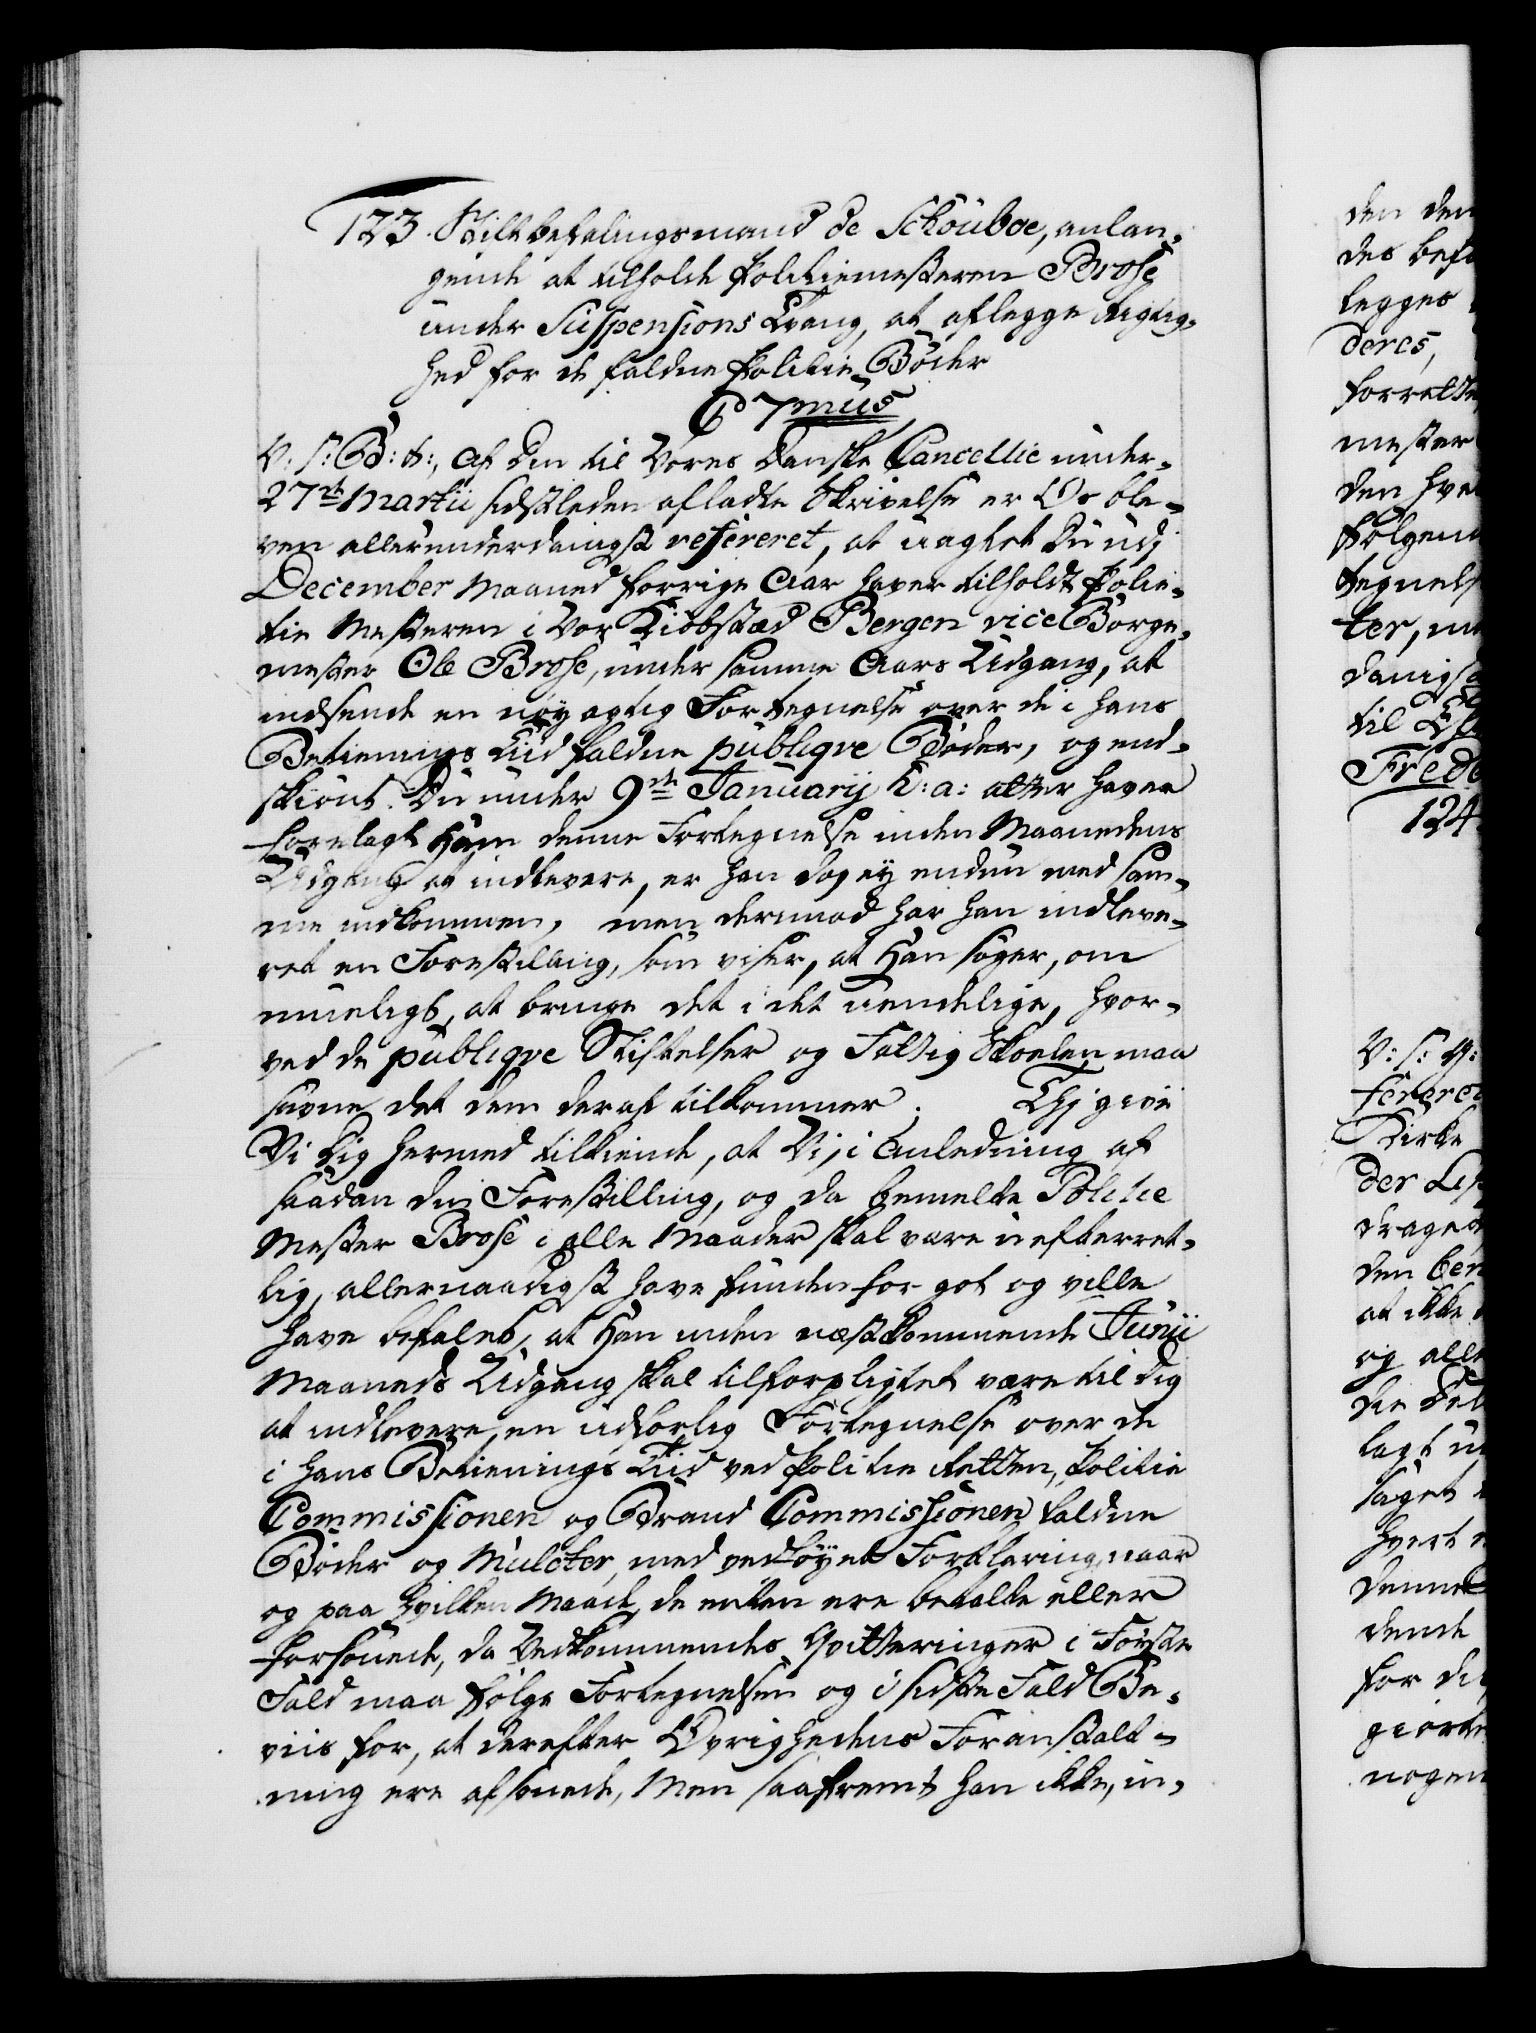 123. Stiftbefalingsmand de Schouboe, anlan-
gende at tilholde Politiemesteren Brose
under Suspensions Tvang, at aflegge Rigtig-
hed for de faldne Politie Bøder
C 7mus
V: S: G: T:, Af Din til Vores Danske Cancellie under
27de Martii sidstleden afladte Skrivelse er Os ble-
ven allerunderdanigst refereret, at uagtet Du udj
December Maaned forrige Aar haver tilholdt Poli-
tie Mesteren i Vor Kiøbstæd Bergen vice Borge-
mester Ole Brose, under samme Aars Udgang, at
indsende en nøyagtig Fortegnelse over de i hans
Betienings Tiid faldne publiqve Bøder, og end-
skiønt Du under 9de Januarij h: a: atter haver
forelagt Ham denne Fortegnelse inden Maanedens
Udgang at indlevere, er han dog ey endnu med sam-
me indkommen, men derimod har han indleve-
ret en Forestilling, som viser, at Han søger, om
mueligt, at bringe det i det uendelige, hvor-
ved de publiqve Stiftelser og Fattig Skoelen maa
savne det dem deraf tilkommer. Thj give
Vi Dig hermed tilkiende, at Vi, i Anledning af
saadan din Forestilling, og da bemelte Politie
Mester Brose i alle Maader skal være uefterret-
lig, allernaadigst have funden for got og ville
have befalet, at Han inden næstkommende Junii
Maaneds Udgang skal tilforpligtet være til Dig
at indlevere en udførlig Fortegnelse over de
i hans Betienings Tiid ved Politie Retten, Politie
Commissionen og Brand Commissionen faldne
Bøder og Mulcter, med vedføyet Forklaring, naar
og paa hvilken Maade, de enten ere betalte eller
forsonede, da Vedkommendes Qvitteringer i Første
Fald maa følge Fortegnelsen og i sidste Fald Be-
viis for, at derefter Øvrighedens Foranstalt-
ning ere afsonede, Men saafremt han ikke, in-